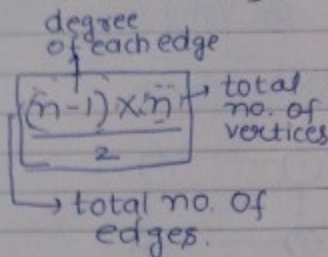 degree
of each edge
(n-1) × n → total
no. of
vertices
2
→ total no. of
edges.